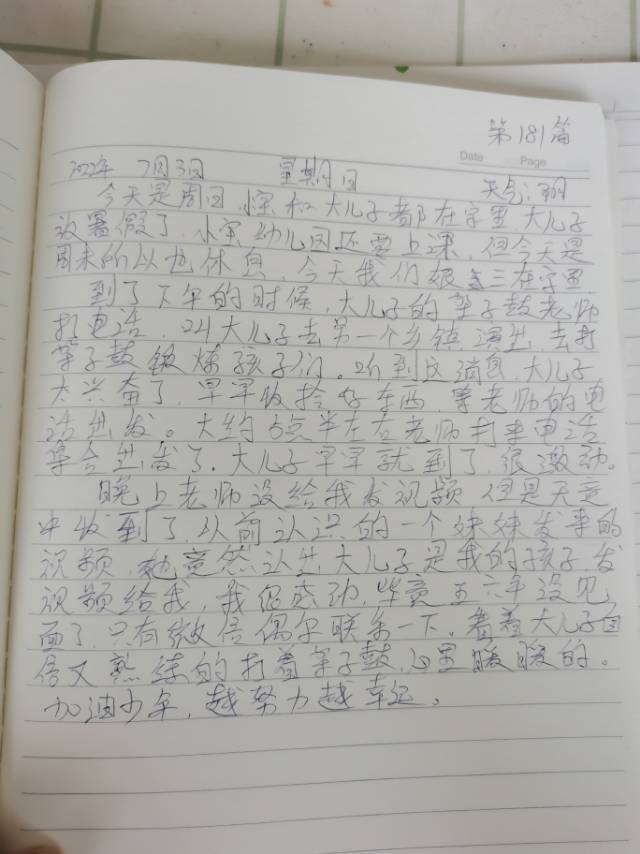 第181篇
Date Page
2022年 7月3日 星期日 天气:晴
今天是周日,小宝和大儿子都在家里,大儿子
放暑假了,小宝幼儿园还要上课,但今天是
周末所以也休息,今天我们娘三在家里.
到了下午的时候,大儿子的架子鼓老师
打电话,叫大儿子去另一个乡镇演出,去打
架子鼓锻炼孩子们。听到这消息,大儿子
太兴奋了,早早收拾好东西,等老师的电
话出发。大约5点半左右老师打来电话
集合出发了.大儿子早早就到了,很激动。
晚上老师没给我发视频,但是无意
中收到了,以前认识的一个妹妹发来的
视频,她竟然认出大儿子是我的孩子,发
视频给我,我很感动,毕竟五六年没见
面了,只有微信偶尔联系一下。看着大儿子自
信又熟练的打着架子鼓,心里暖暖的。
加油少年,越努力越幸运。